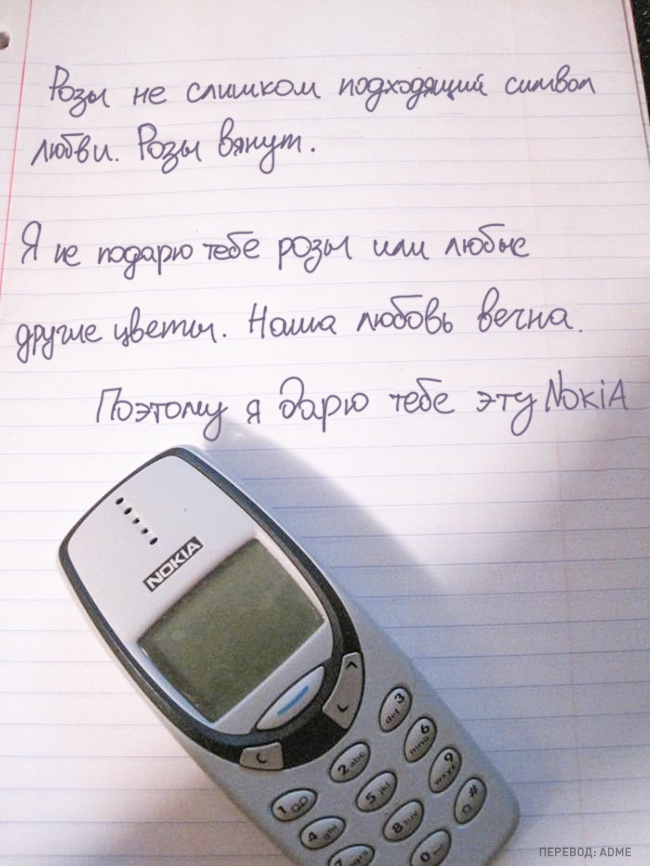 Розы не слишком подходящий символ
любви. Розы вянут.
Я не подарю тебе розы или любые
другие цветы. Наша любовь вечна.
Поэтому я дарю тебе эту NokiA
NOKIA
C
1
2 abc
3 def
4 ghi
5 jkl
6 mno
7
8 tuv
9 wxyz
0
#
ПЕРЕВОД: ADME